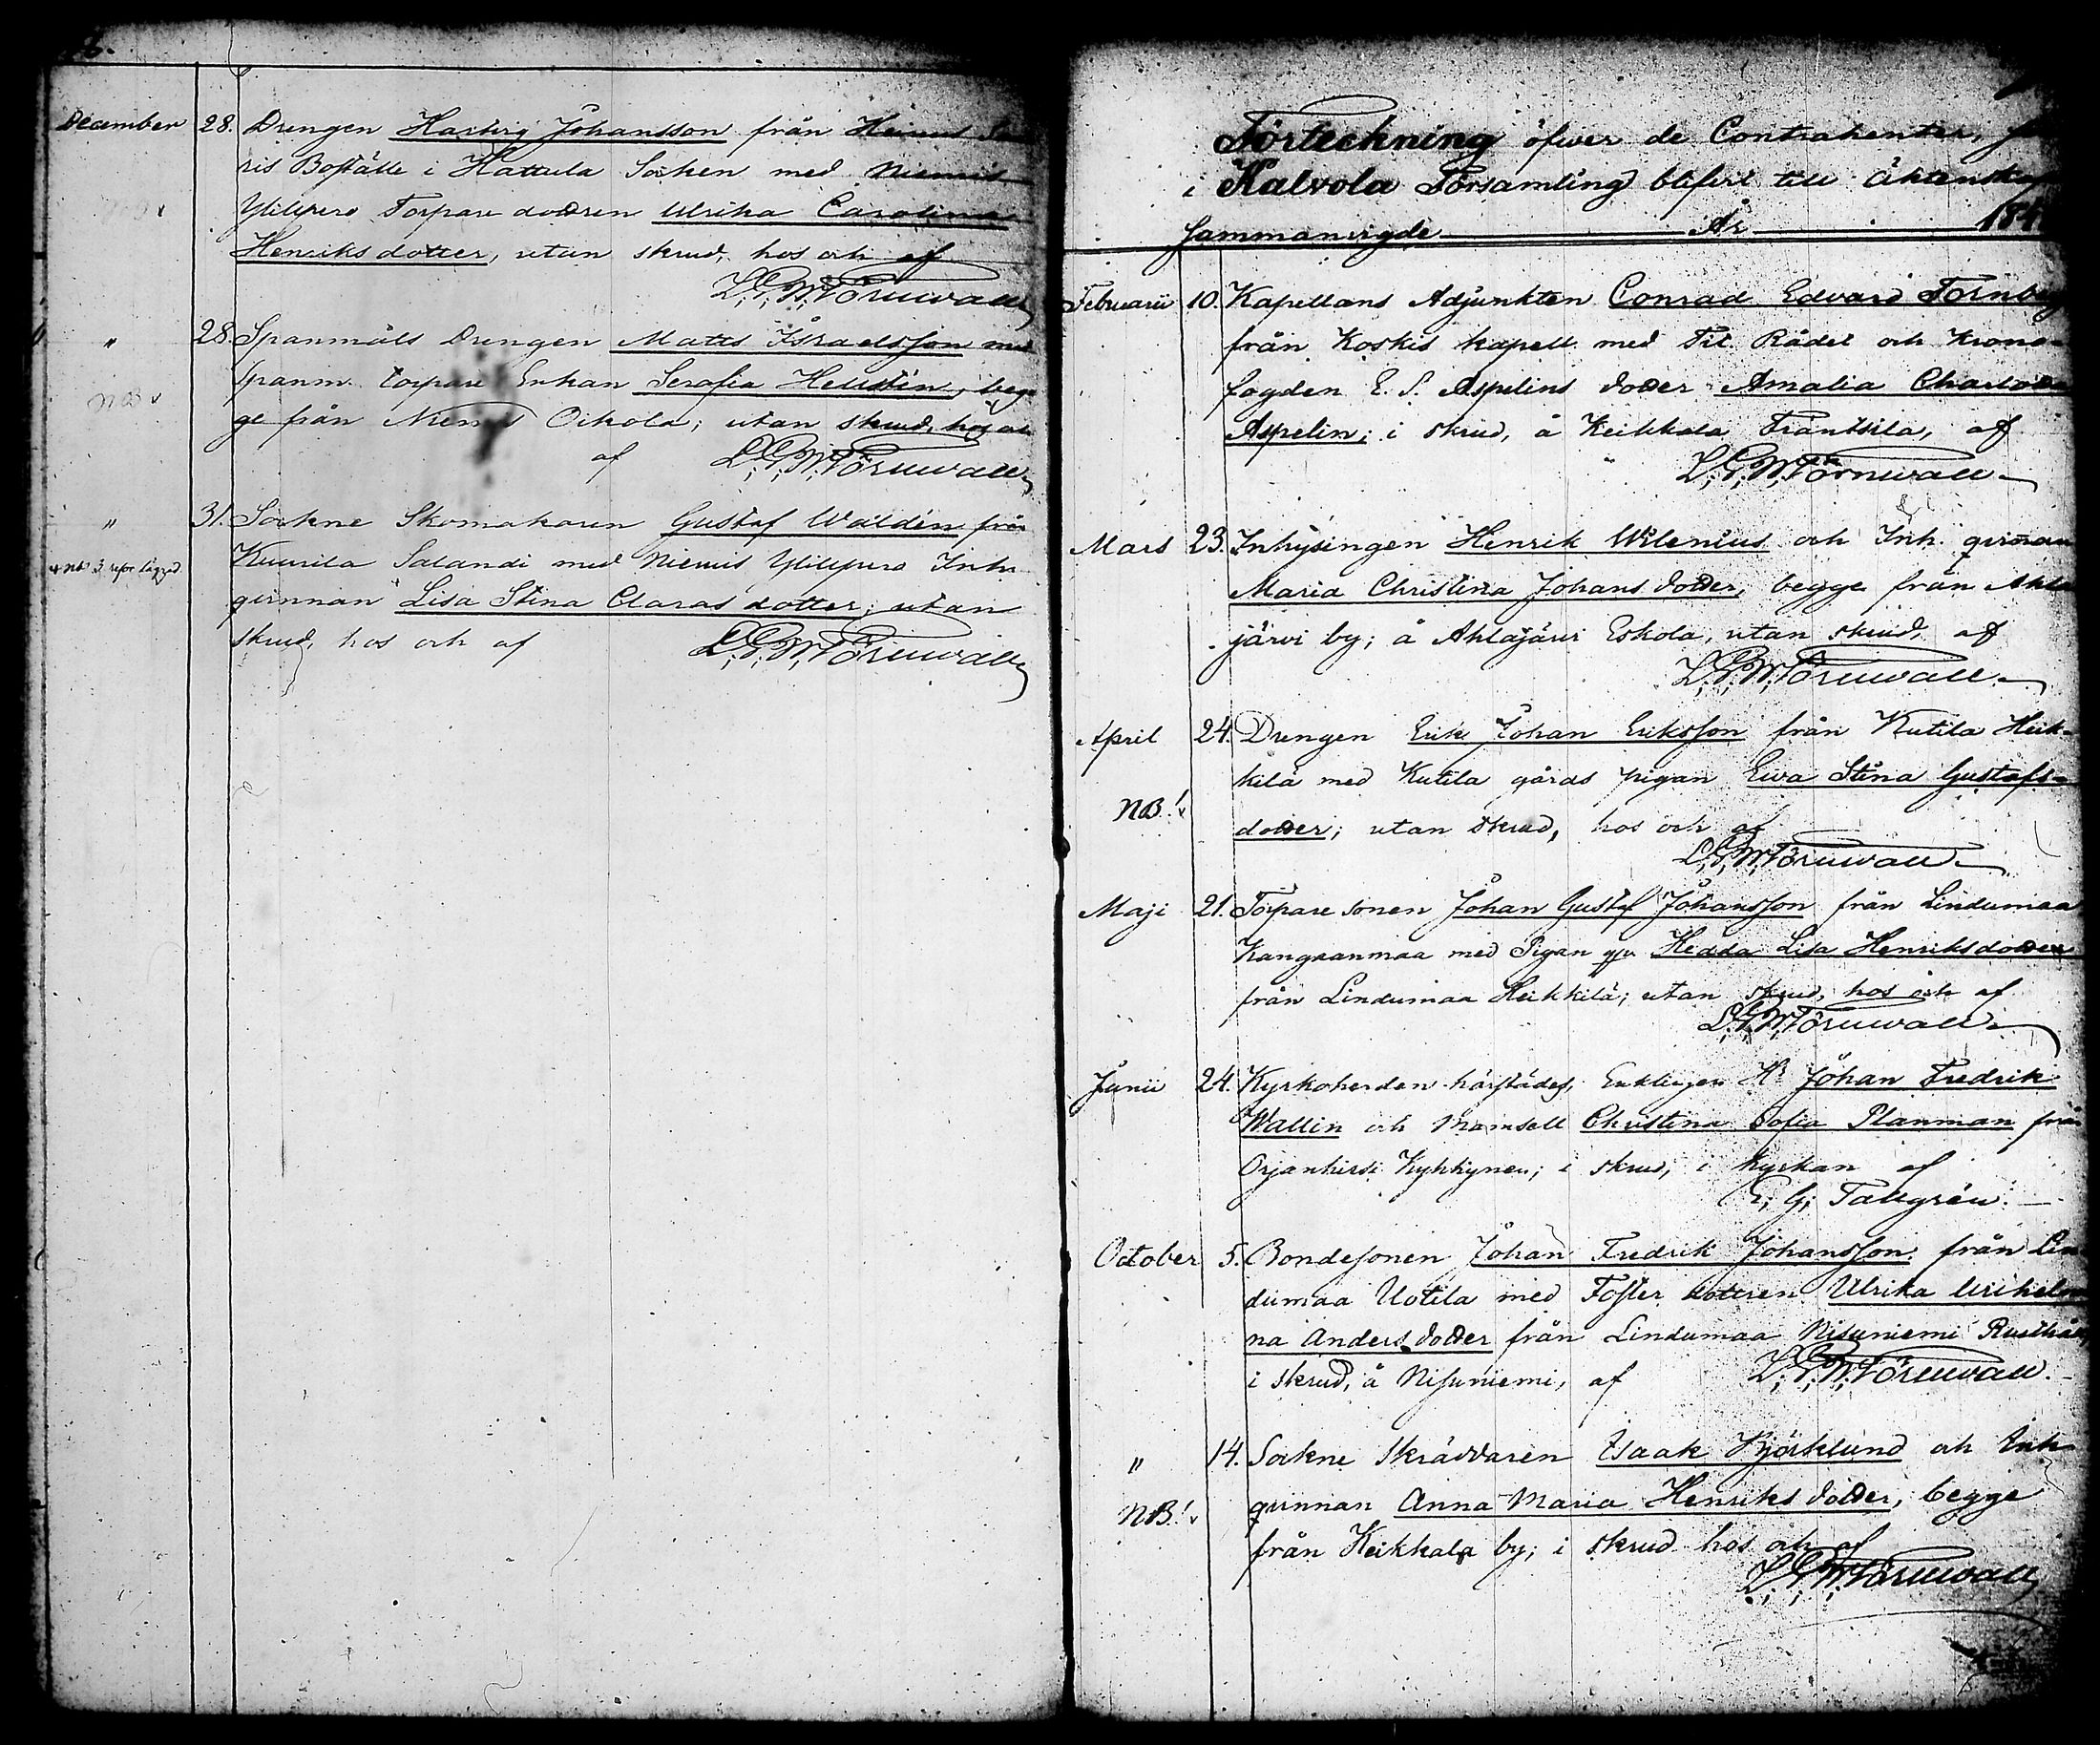 December 28. Drengen Hartvig Johansson från Heinus
ris Boställe i Hattula Socken med Niemis
Ylilepero Torpare dottren Ulrika Carolina
Henriksdotter, utan skrud, hos och af
L. G. W. Törnwall
" 28. Spanmåls Drengen Matts Israelsson med
NB Spanm. torpare Enkan Serafia Hellstén, beg
ge från Niemis Oikola; utan skrud, hos och
af L. G. W. Törnwall
" 31. Sockne Skomakaren Gustaf Waldén från
Kuurila Salandi med Niemis Ylilepero Inh.
qvinnan Lisa Stina Clarasdotter, utan
skrud, hos och af L. G. W. Törnwall
Förteckning öfver de Contrahenter, som
i Kalvola Församling blifvit till Äktenskap
sammanvigde År 184
Februarii 10. Kapellans Adjunkten Conrad Edvard Tornberg
från Koskis kapell med Tit. Rådet och Krono-
fogden E. S. Aspelins dotter Amalia Charlotta
Aspelin; i skrud, å Keikkala Fräntsilä, af
L. G. W. Törnwall
Mars 23. Inhysingen Henrik Wilenius och Inh. qvinnan
Maria Christina Johansdotter, begge från Ahla
järvi by; å Ahlajärvi Eskola, utan skrud, af
L. G. W. Törnwall
April 24. Drengen Erik Johan Eriksson från Kutila Heik-
kilä med Kutila gårds pigan Ewa Stina Gustafs-
NB! dotter; utan skrud, hos och af
L. G. W. Törnwall
Maji 21. Torpare sonen Johan Gustaf Johansson från Lindumaa
Kangaanmaa med Pigan Hedda Lisa Henriksdotter
från Lindumaa Heikkilä; utan skrud, hos och af
L. G. W. Törnwall
Junii 24. Kyrkoherden härstädes, Enklingen Hr Johan Fredrik
Wallin och Mamsell Christina Sofia Planman från
Orjanhirsi Kykkynen; i skrud, i kyrkan af
E. G. Tallgrén.
October 5. Bondesonen Johan Fredrik Johansson från Lin
dumaa Uotila med Foster dottren Ulrika Wilhelmi
na Andersdotter från Lindumaa Nisuniemi Rusthåll,
i skrud, å Nisuniemi, af L. G. W. Törnwall.
" 14. Sockne Skräddaren Isaak Björklund och Inh
NB! qvinnan Anna Maria Henriksdotter, begge
från Keikkala by; i skrud hos och af
L. G. W. Törnwall